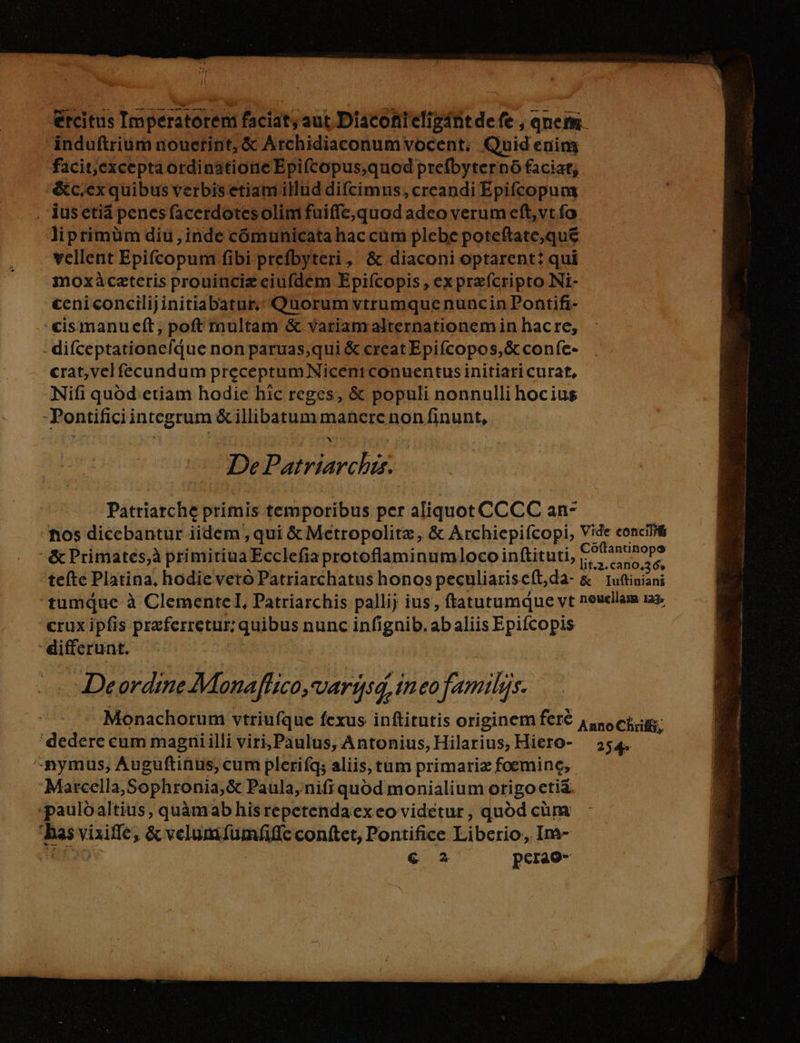 ercitus Imperatorem faciat, aut Diaconi eligāt de se, quem
industrium nouerint, & Archidiaconum vocent. Quid enim
facit, excepta ordinatione Episcopus, quod presbyter nō faciat,
&c. ex quibus verbis etiam illud discimus, creandi Episcopum
ius etiā penes sacerdotes olim fuisse, quod adeo verum est, vt so
li primùm diu, inde cōmunicata hac cùm plebe potestate, quē
vellent Episcopum sibi presbyteri, & diaconi optarent: qui
mox à cæteris prouinciæ eiusdem Episcopis, ex præscripto Ni-
ceni concilij initiabatur. Quorum vtrumque nunc in Pontifi-
cis manu est, post multam & variam alternationem in hac re,
disceptationesque non paruas, qui & creat Episcopos, & conse-
crat, vel secundum pręceptum Niceni conuentus initiari curat.
Nisi quòd etiam hodie hic reges, & populi nonnulli hoc ius
Pontifici integrum & illibatum manere non sinunt.
De Patriarchis.
Patriarchę primis temporibus per aliquot CCCC an-
nos dicebantur iidem, qui & Metropolitæ, & Archiepiscopi,
& Primates, à primitiua Ecclesia protoflaminum loco instituti,
teste Platina, hodie verò Patriarchatus honos peculiaris est, da-
tumque à Clemente I. Patriarchis pallij ius, statutumque vt
crux ipsis præferretur: quibus nunc insignib. ab aliis Episcopis
differunt.
Vide concilii
Cōstantinopo
lit. 2. cano. 36.
& Iustiniani
nouellam 123.
De ordine Monastico, varijsq́, in eo familijs.
Monachorum vtriusque sexus institutis originem ferè
dedere cum magni illi viri, Paulus, Antonius, Hilarius, Hiero-
nymus, Augustinus, cum plerisq; aliis, tum primariæ foeminę,
Marcella, Sophronia, & Paula, nisi quòd monialium origo etiā
paulò altius, quàm ab his repetenda ex eo videtur, quòd cùm
has vixisse, & velum sumsisse constet, Pontifice Liberio, Im-
Anno Christi,
254.
C 2 perao-